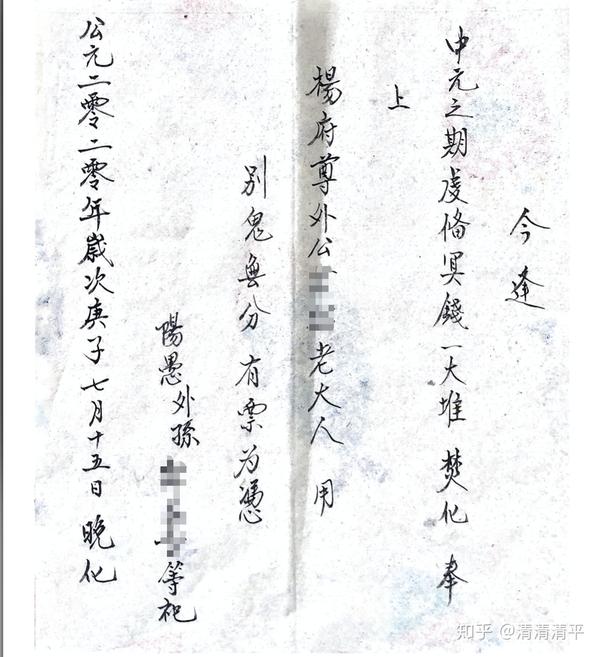 今逢
中元之期虔俻冥錢一大堆焚化 奉
上
楊府尊外公老大人 用
別鬼無分有票为憑
陽愚外孫等祀
公元二零二零年歲次庚子七月十五日 晚化
知乎 @清清清平